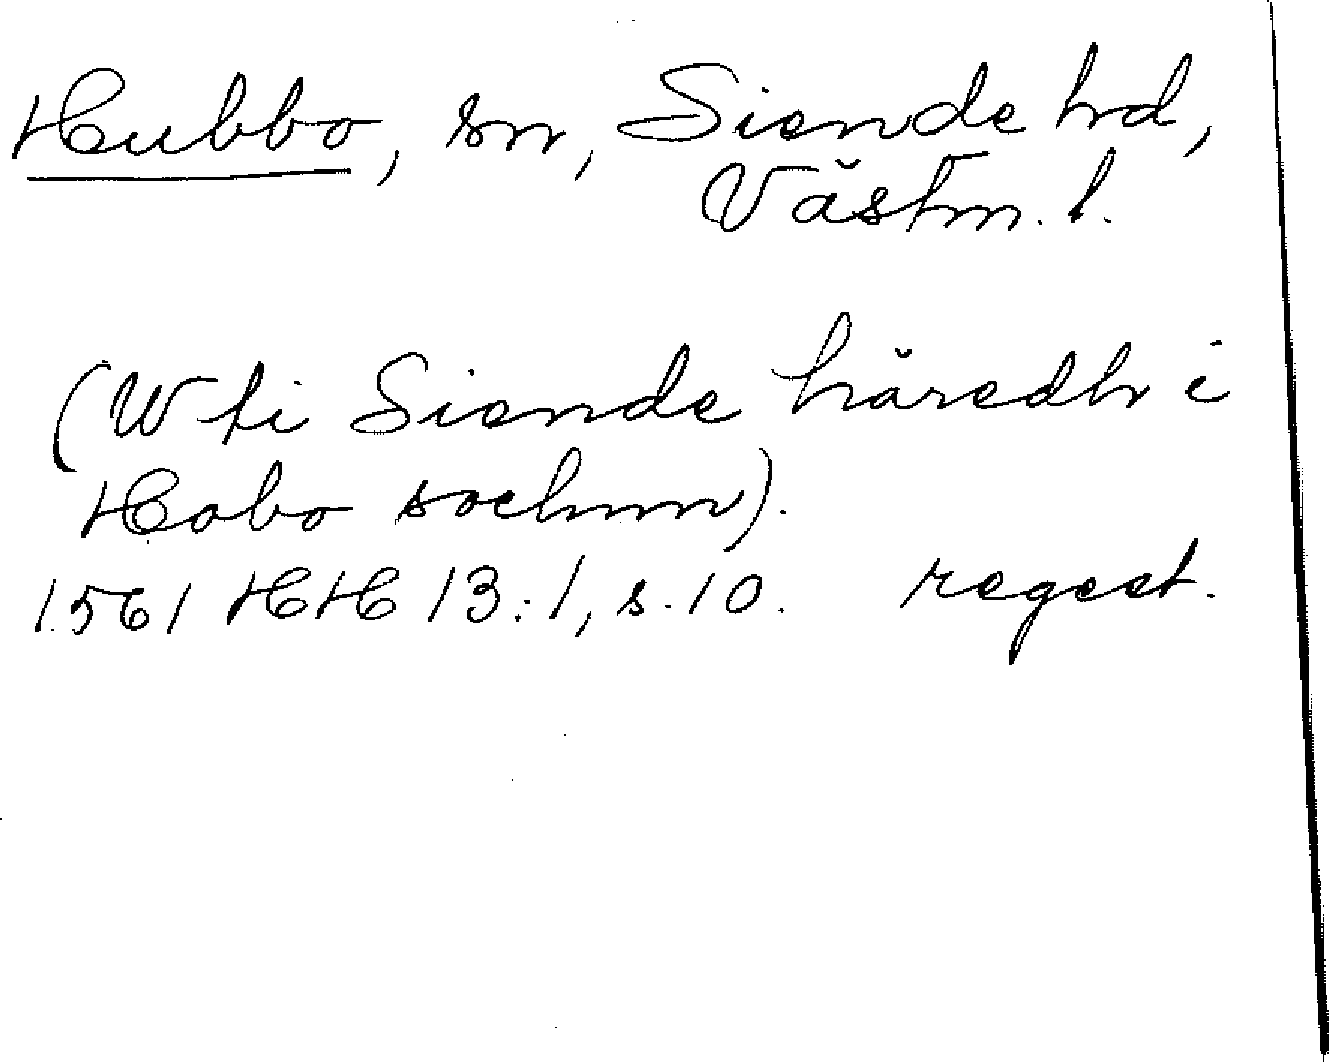 Hubbo, sn, Siende hd,
Västm. l.
(Wti Siende häredh i
Hobo sochnn).
1561 HH 13:1, s. 10. regest.